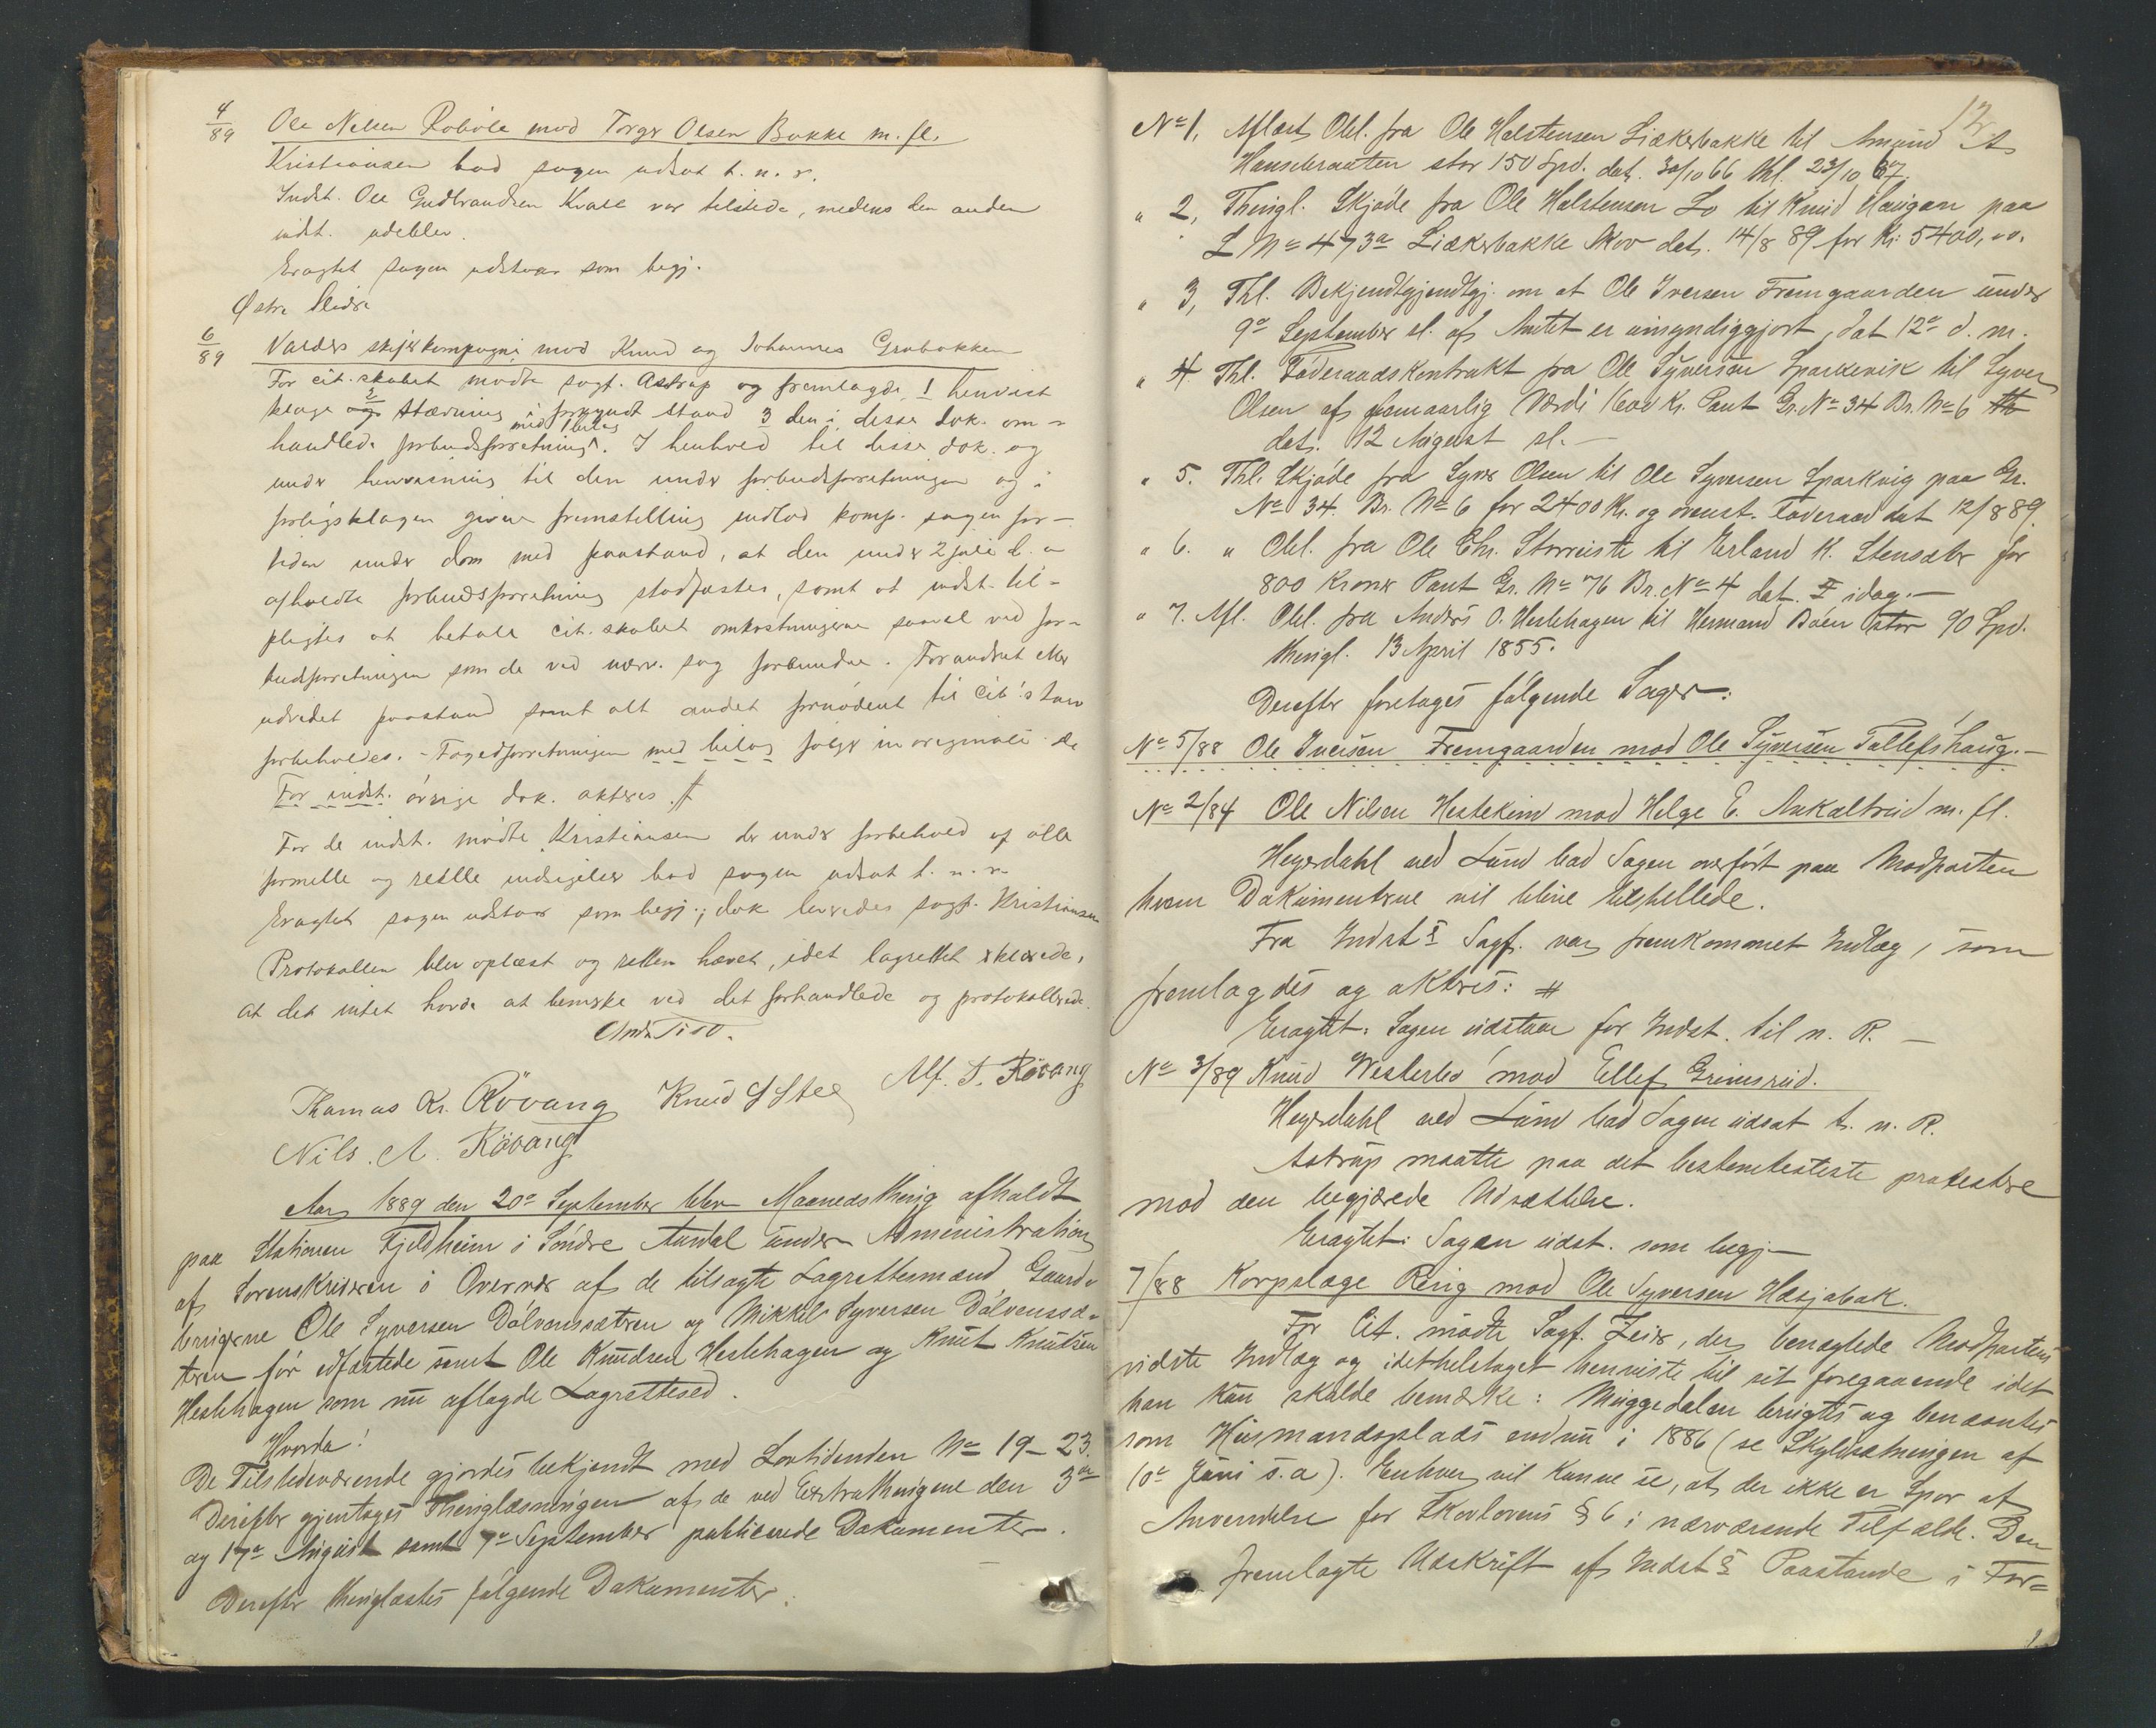 4/89 Ole Nelsen Robøle mod Torger Olsen Bakke m. fl.
Kristiansen bad sagen udsat t. n. r.
Indst. Ole Gudbrandsen Kvale var tilstede, medens den anden
indst. udeblev.
Eragtet sagen udstaar som begj.
Østre Slidre
6/89 Valders skiferkompagni mod Knud og Johannes Grøbakken
For cit.skabet mødte sagf. Astrup og fremlagde 1 henvist
klage og 2 stævning i forkyndt stand 3 den i disse dok. om-
handlede forbudsforretning med bilag. I henhold til disse dok. og
under henvisning til den under forbudsforretningen og i
forligsklagen givne fremstilling indlod komp. sagen for-
tiden under dom med paastand, at den under 2 juli d. a
afholdte forbudsforretning stadfæstes, samt at indst. til-
pligtes at betale cit.skabet omkostningerne saavel ved for-
budsforretningen som de ved nærv. sag forbundne. Forandret eller
udvidet paastand samt alt andet fornødent til cit's tarv
forbeholdes. - Fogedforretningen med bilag følger in originali de
For indst. øvrige dok. akteres #
For de indst. mødte Kristiansen der under forbehold af alle
formelle og reelle indsigelser bad sagen udsat t. n. r.
Eragtet sagen udstaar som begj.; dok leveredes sagf. Kristiansen
Protokollen blev oplæst og retten hævet, idet lagrettet erklærede,
at det intet havde at bemerke ved det forhandlede og protokollerede.
Thomas Kr. Røvang Knud S Stee Alf. T. Røvang
Nils. A. Røvang
Aar 1889 den 20de September blev Maanedsthing afholdt
paa Stationen Fjeldheim i Søndre Aurdal under Administration
af Sorenskriveren i Overvær af de tilsagte Lagrettemænd Gaard-
brugerne Ole Syversen Dølvensætren og Mikkel Syversen Dølvenssæ-
tren før edfæstede samt Ole Knudsen Heslehagen og Knut Knutsen
Heslehagen som nu aflagde Lagrettesed.
Hvorda!
De Tilstedeværende gjordes bekjendt med Lovtidenden No 19-23.
Derefter gjentages Thinglæsningen af de ved Extrathingene den 3die
og 17de August samt 7de September publicerede Dokumenter.
Derefter thinglæstes følgende Dokumenter:
No 1, Aflæst Obl. fra Ole Halstensen Liækerbakke til Amund A
Hansebraaten stor 150 Spd. dat. 30/10 66 thl. 23/10 67.
" 2, Thingl. Skjøde fra Ole Halstensen Lo til Knud Haugan paa
L No 473a Liækerbakke Skov dat. 14/8 89 for Kr. 5400,00.
" 3, Thl. Bekjendtgjendtgj. om at Ole Iversen Fremgaarden under
9de September sl. af Amtet er umyndiggjort, dat 12te d. m.
" 4 Thl. Føderaadskontrakt fra Ole Syversen Sparkevik til Syver
Olsen af femaarlig Værdi 1600 Kr. Pant Gr. No 34 Br. No 6
dat. 12 August sl. —
" 5. Thl. Skjøde fra Syver Olsen til Ole Syversen Sparkvig paa Gr.
No 34. Br. No 6 for 2400 Kr. og ovenst. Føderaad dat 12/8 89.
" 6. " Obl. fra Ole Chr. Storruste til Erland K. Stensæter for
800 Kroner Pant Gr. No 76 Br. No 4 dat. idag. —
" 7. Afl. Obl. fra Anders O. Heslehagen til Hermand Bøen stor 90 Spd.
thingl. 13 April 1855.
Derefter foretages følgende Sager:
No 5/88 Ole Iversen Fremgaarden mod Ole Syversen Tollefshaug. —
No 2/84 Ole Nilsen Hestekind mod Helge E. Aukaltrud m. fl.
Heyerdahl ved Lund bad Sagen overført paa Modparten
hvem Dokumentene vil blive tilstillede.
Fra Indsts Sagf. var fremkommet Indlæg, som
fremlagdes og akteres: #
Eragtet: Sagen udstaar for Indst. til n. R. —
No 3/89 Knud Westerbø mod Ellef Grimsrud.
Heyerdahl ved Lund bad Sagen udsat t. n. R.
Astrup maatte paa det bestemtesteste protestere
mod den begjærede Udsættelse.
Eragtet: Sagen udst. som begj —
7/88 Korpslæge Ring mod Ole Syversen Hæsjabak.
For Cit. mødte Sagf. Zeier, der benægtede Modpartens
sidste Indlæg og idethele taget henviste til sit foregaaende idet
han kun skulde bemærke: Muggedalen brugtes og benævntes
som Husmandsplads endnu i 1886 (se Skyldsætningen af
10de Juni s. a). Enhver vil kunne se, at der ikke er Spor af
Anvendelse for Skovlovens § 6 i nærværende Tilfælde. Den
fremlagte Udskrift af Indsts Paastande i For=